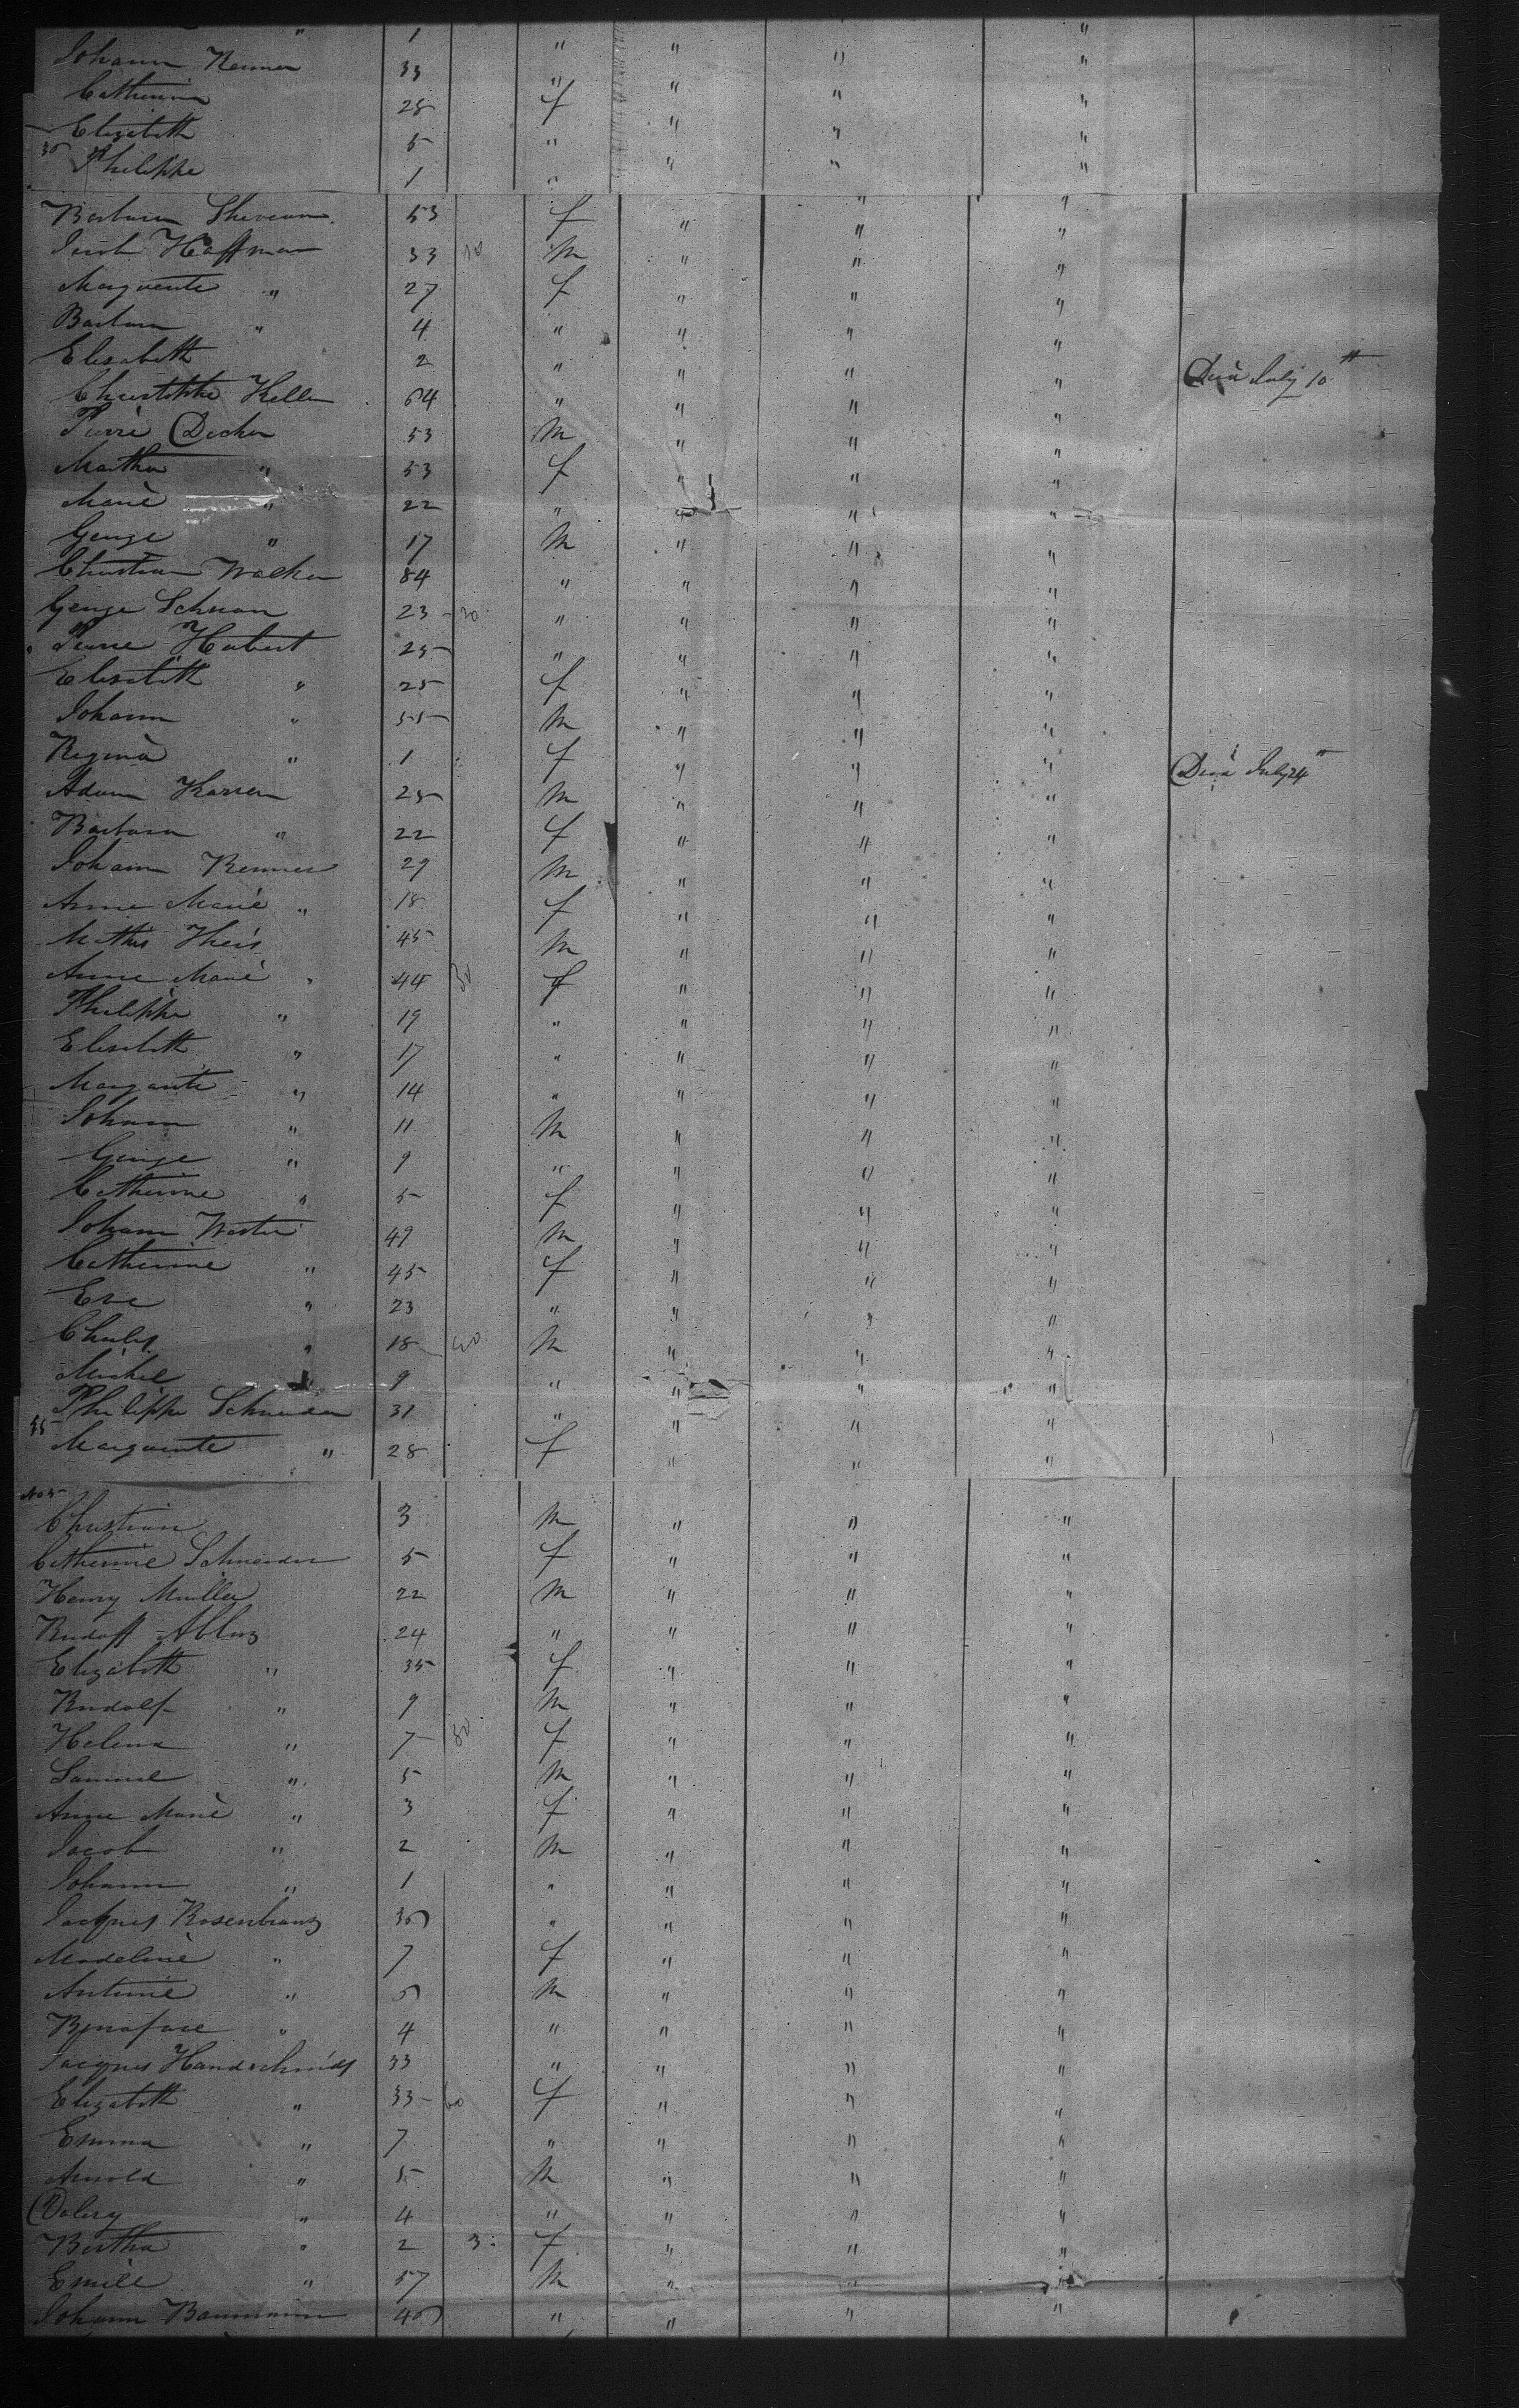 " 1 " " " "
Johann Renner 33 " " " "
Catherine 28 f " " "
Elizabeth 5 " " " "
30 Philippe 1 " " " "
Barbara 53 f " " "
Jacob Hoffman 33 10 M " " "
Marguerite " 27 f " " "
Barbara " 4 " " " "
Elisabeth 2 " " " " Died July 10th
Christophe Keller 64 " " " "
Pierre Decker 53 M " " "
Martha " 53 f " " "
Marie " 22 " " " "
George " 17 M " " "
Christian Walker 84 " " " "
George Schuan 23 - 20 " " " "
Pierre Hubert 25 " " " "
Elisabeth " 25 f " " "
Johann " 55 M " " "
Regina " 1 f " " " Died July 24"
Adam Karren 25 M " " "
Barbara " 22 f " " "
Johann Renner 29 M " " "
Anne Marie " 18 f " " "
Mathis Theis 45 M " " "
Anne Marie " 44 30 f " " "
Philippe " 19 " " " "
Elisabeth " 17 " " " "
Margarite " 14 " " " "
Johann " 11 M " " "
George " 9 " " " "
Catherine " 5 f " " "
Johann Wester 49 M " " "
Catherine " 45 f " " "
Eve " 23 " " " "
Charles " 18 - 40 M " " "
Michel " 9 " " " "
Philippe Schneider 31 " " " "
35 Marguerite " 28 f " " "
No 5
Christian 3 M " " "
Catherine Schneider 5 f " " "
Henry Muller 22 M " " "
Rudolf 24 " " " "
Elizabeth " 35 f " " "
Rudolf " 9 M " " "
Helena " 7 - 50 f " " "
Samuel " 5 M " " "
Anne Marie " 3 f " " "
Jacob " 2 M " " "
Johann " 1 " " " "
Jacques Rosenkranz 36 " " " "
Madeline " 7 f " " "
Antoine " 6 M " " "
" 4 " " " "
Jacques Handschmidt 33 " " " "
Elizabeth " 33 - 60 f " " "
Emma " 7 " " " "
Arnold " 5 M " " "
" 4 " " " "
Bertha " 2 3 f " " "
Emile " 57 M " " "
Johann Baumann 46 " " " "